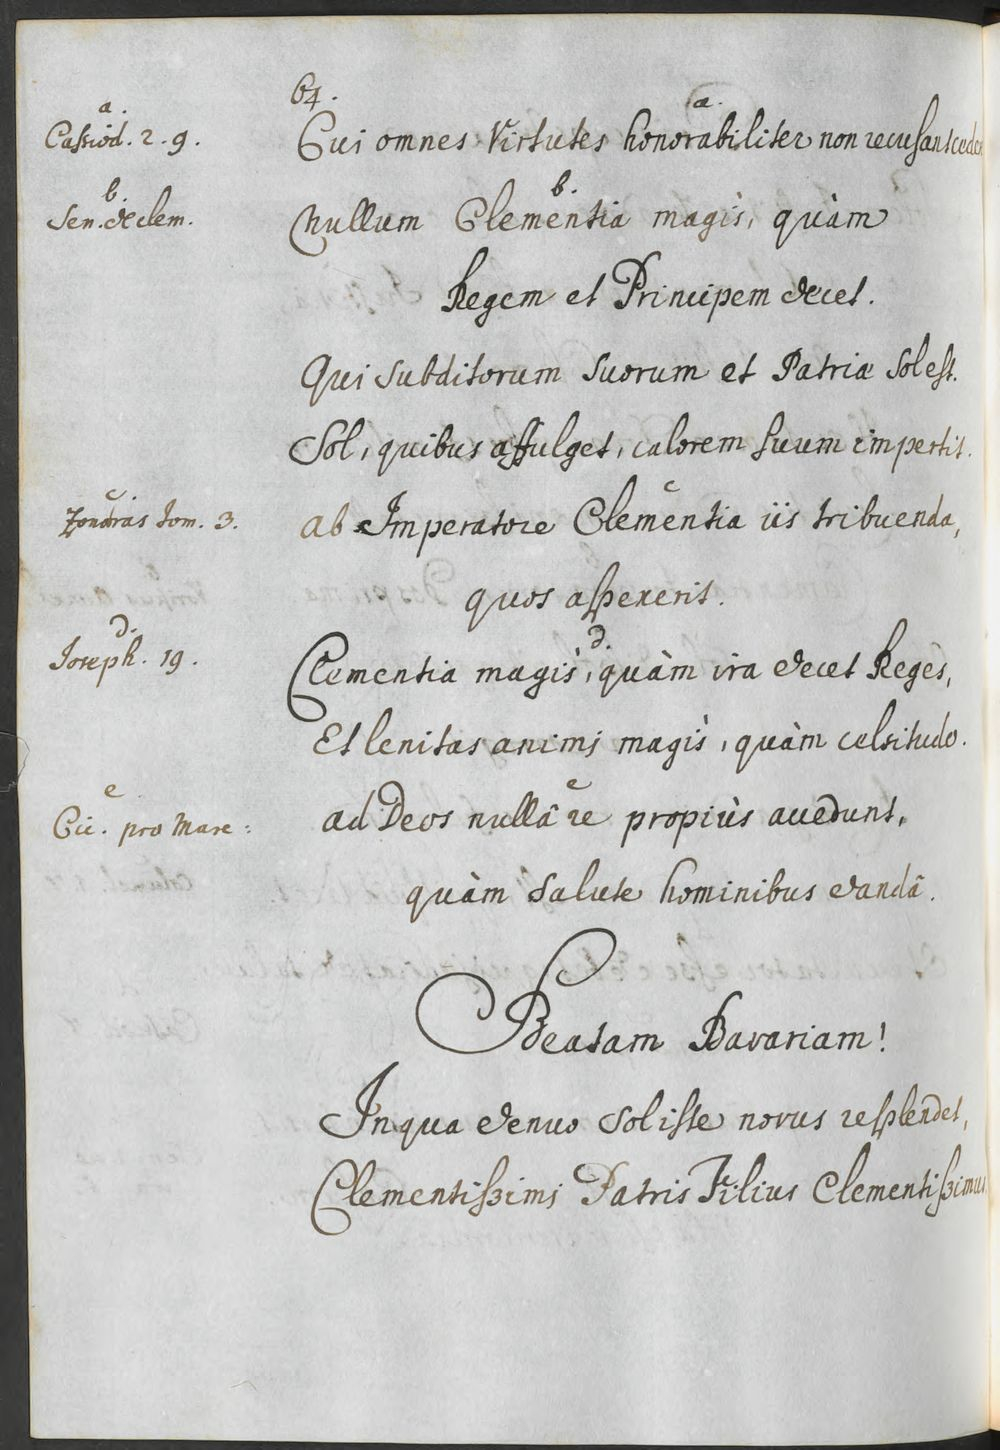 64.
a.
Cassiod. 2. 9.
a.
Cui omnes Virtutes honorabiliter non recusant ceder
b.
Sen. de clem.
b.
Nullum Clementia magis, quàm
Regem et Principem decet.
Qui subditorum suorum et Patriæ Sol est.
Sol, quibus affulget, calorem suum impertit.
c
Zonaras tom. 3.
c
ab Imperatore Clementia iis tribuenda,
quos aspexerit.
d.
Joseph. 19.
d.
Clementia magis, quàm ira decet Reges,
Et lenitas animj magis, quàm celsitudo.
e
Cic. pro Marc:
e
ad Deos nullâ re propiùs accedunt,
quàm salute hominibus dandâ.
Beatam Bavariam!
In qua denuo Sol iste novus resplendet,
Clementissimj Patris Filius Clementissimus